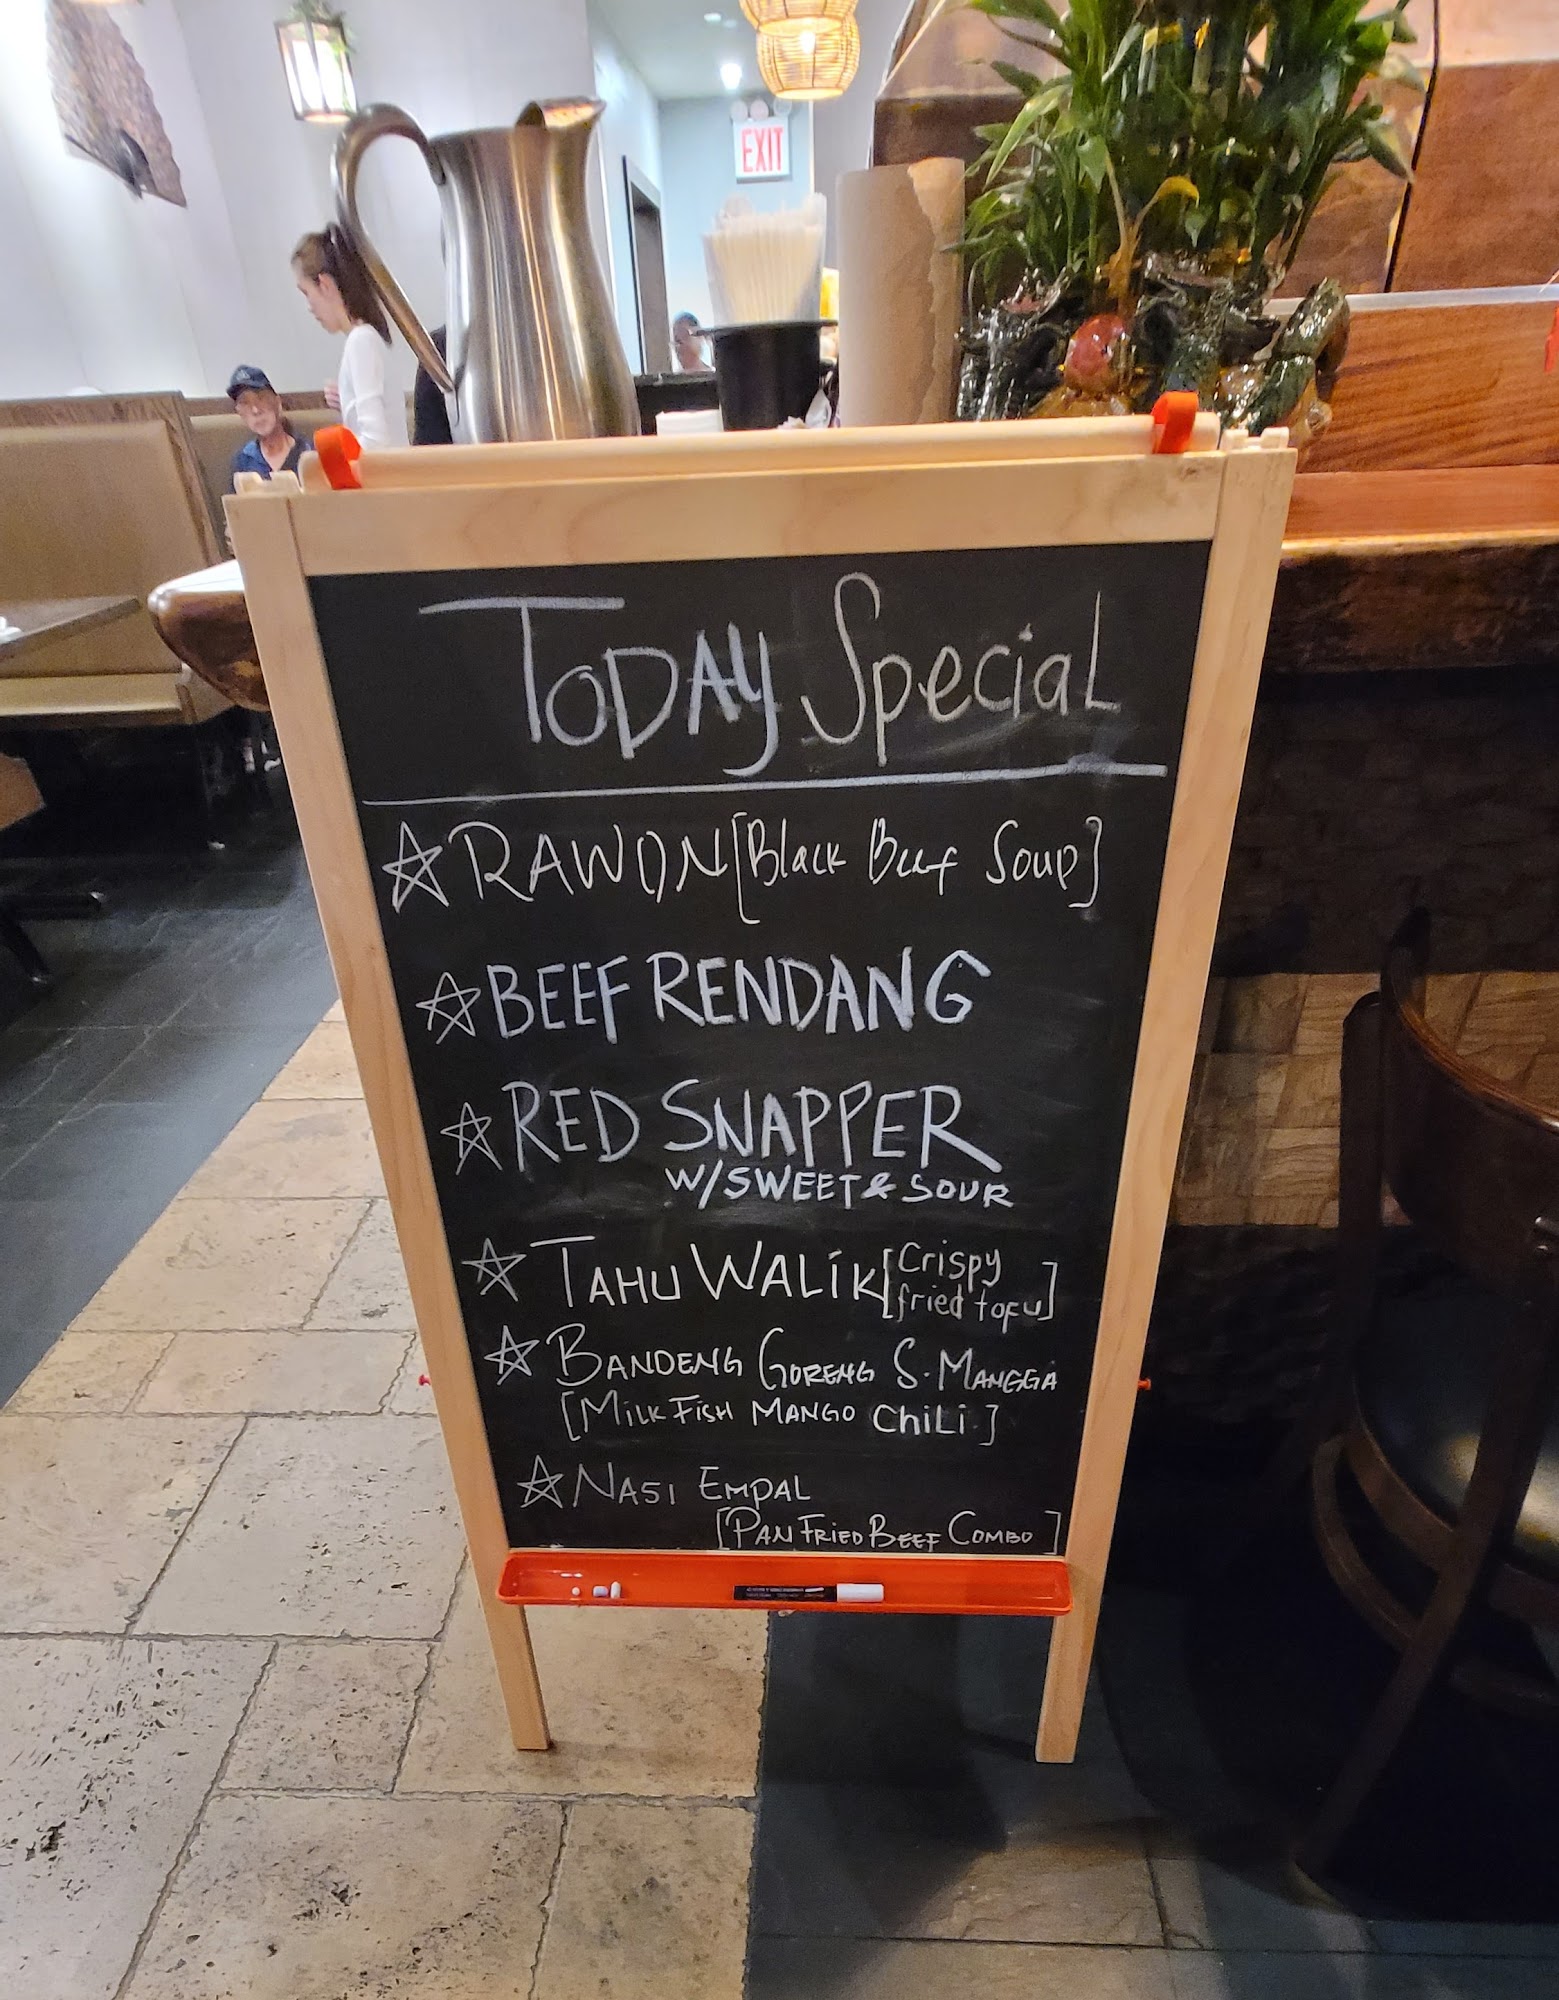 EXIT
TODAY Special
RAWON [Black Beef Soup]
BEEF RENDANG
RED SNAPPER
W/SWEET & SOUR
TAHU WALIK [Crispy
fried tofu]
BANDENG GORENG S. MANGGA
[MILK FISH MANGO CHILI]
NASI EMPAL
[PAN FRIED BEEF COMBO]